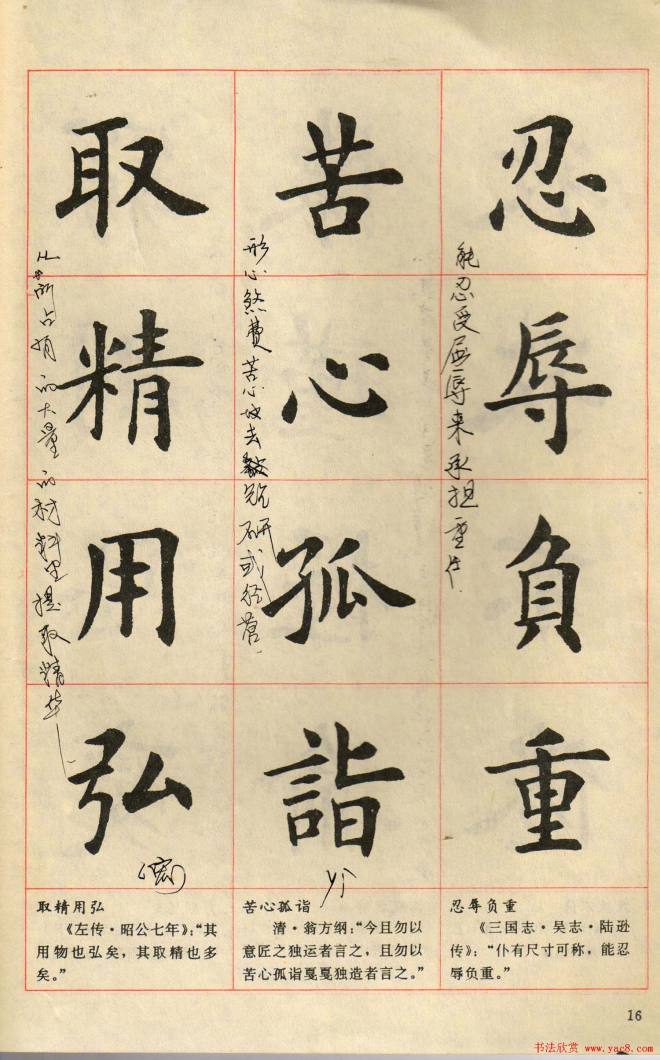 忍辱负重
能忍受屈辱来承担重任
苦心孤詣
形心煞费苦心地去钻研或经营
取精用弘
从所占有的大量的材料里提取精华
(宏)
yì
忍辱负重
《三国志·吴志·陆逊
传》：“仆有尺寸可称，能忍
辱负重。”
苦心孤诣
清·翁方纲：“今且勿以
意匠之独运者言之，且勿以
苦心孤诣戛戛独造者言之。”
取精用弘
《左传·昭公七年》：“其
用物也弘矣，其取精也多
矣。”
16
书法欣赏 www.yac8.com